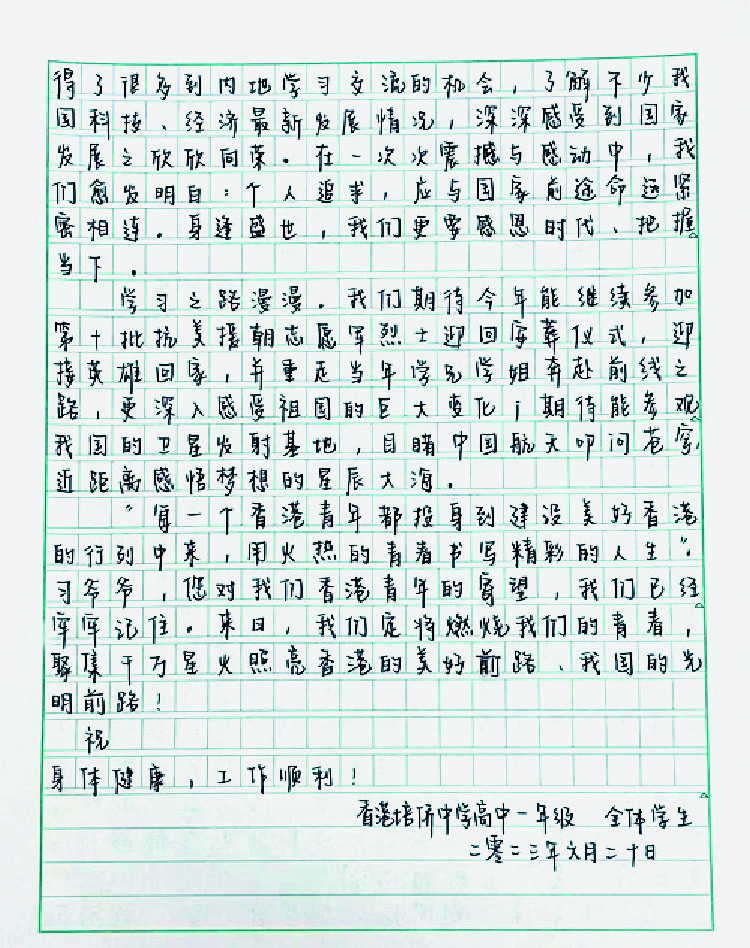 得了很多到内地学习交流的机会，了解不少我
国科技、经济最新发展情况，深深感受到国家
发展之欣欣向荣。在一次次震撼与感动中，我
们愈发明白：个人追求，应与国家前途命运紧
密相连。身逢盛世，我们更要感恩时代、把握
当下。
学习之路漫漫。我们期待今年能继续参加
第十批抗美援朝志愿军烈士迎回安葬仪式，迎
接英雄回家，并重走当年学兄学姐奔赴前线之
路，更深入感受祖国的巨大变化；期待能参观
我国的卫星发射基地，目睹中国航天叩问苍穹
近距离感悟梦想的星辰大海。
“每一个香港青年都投身到建设美好香港
的行列中来，用火热的青春书写精彩的人生”。
习爷爷，您对我们香港青年的寄望，我们已经
牢牢记住。来日，我们定将燃烧我们的青春，
聚集千万星火照亮香港的美好前路、我国的光
明前路！
祝
身体健康，工作顺利！
香港培侨中学高中一年级 全体学生
二零二三年六月二十日